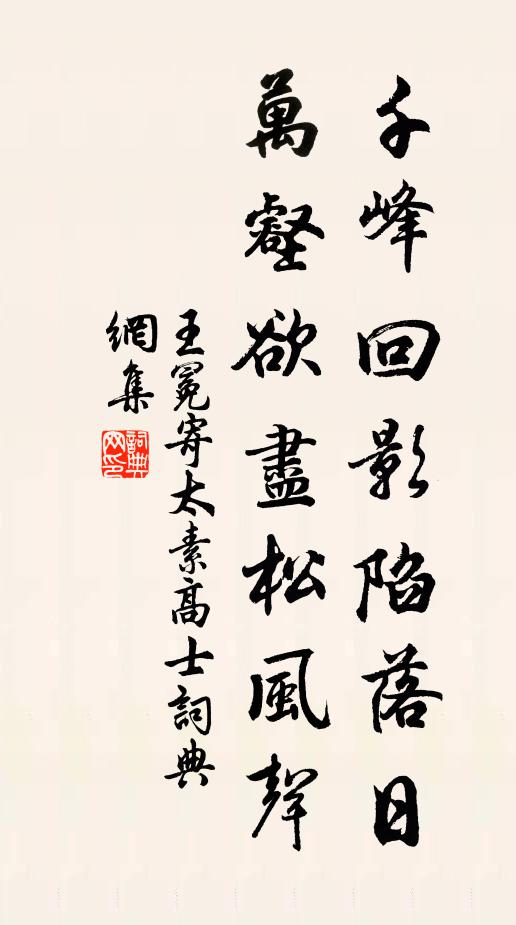 千峰回影陷落日
萬壑欲盡松風聲
王冕寄太素高士詞典
網集
詞典
网印